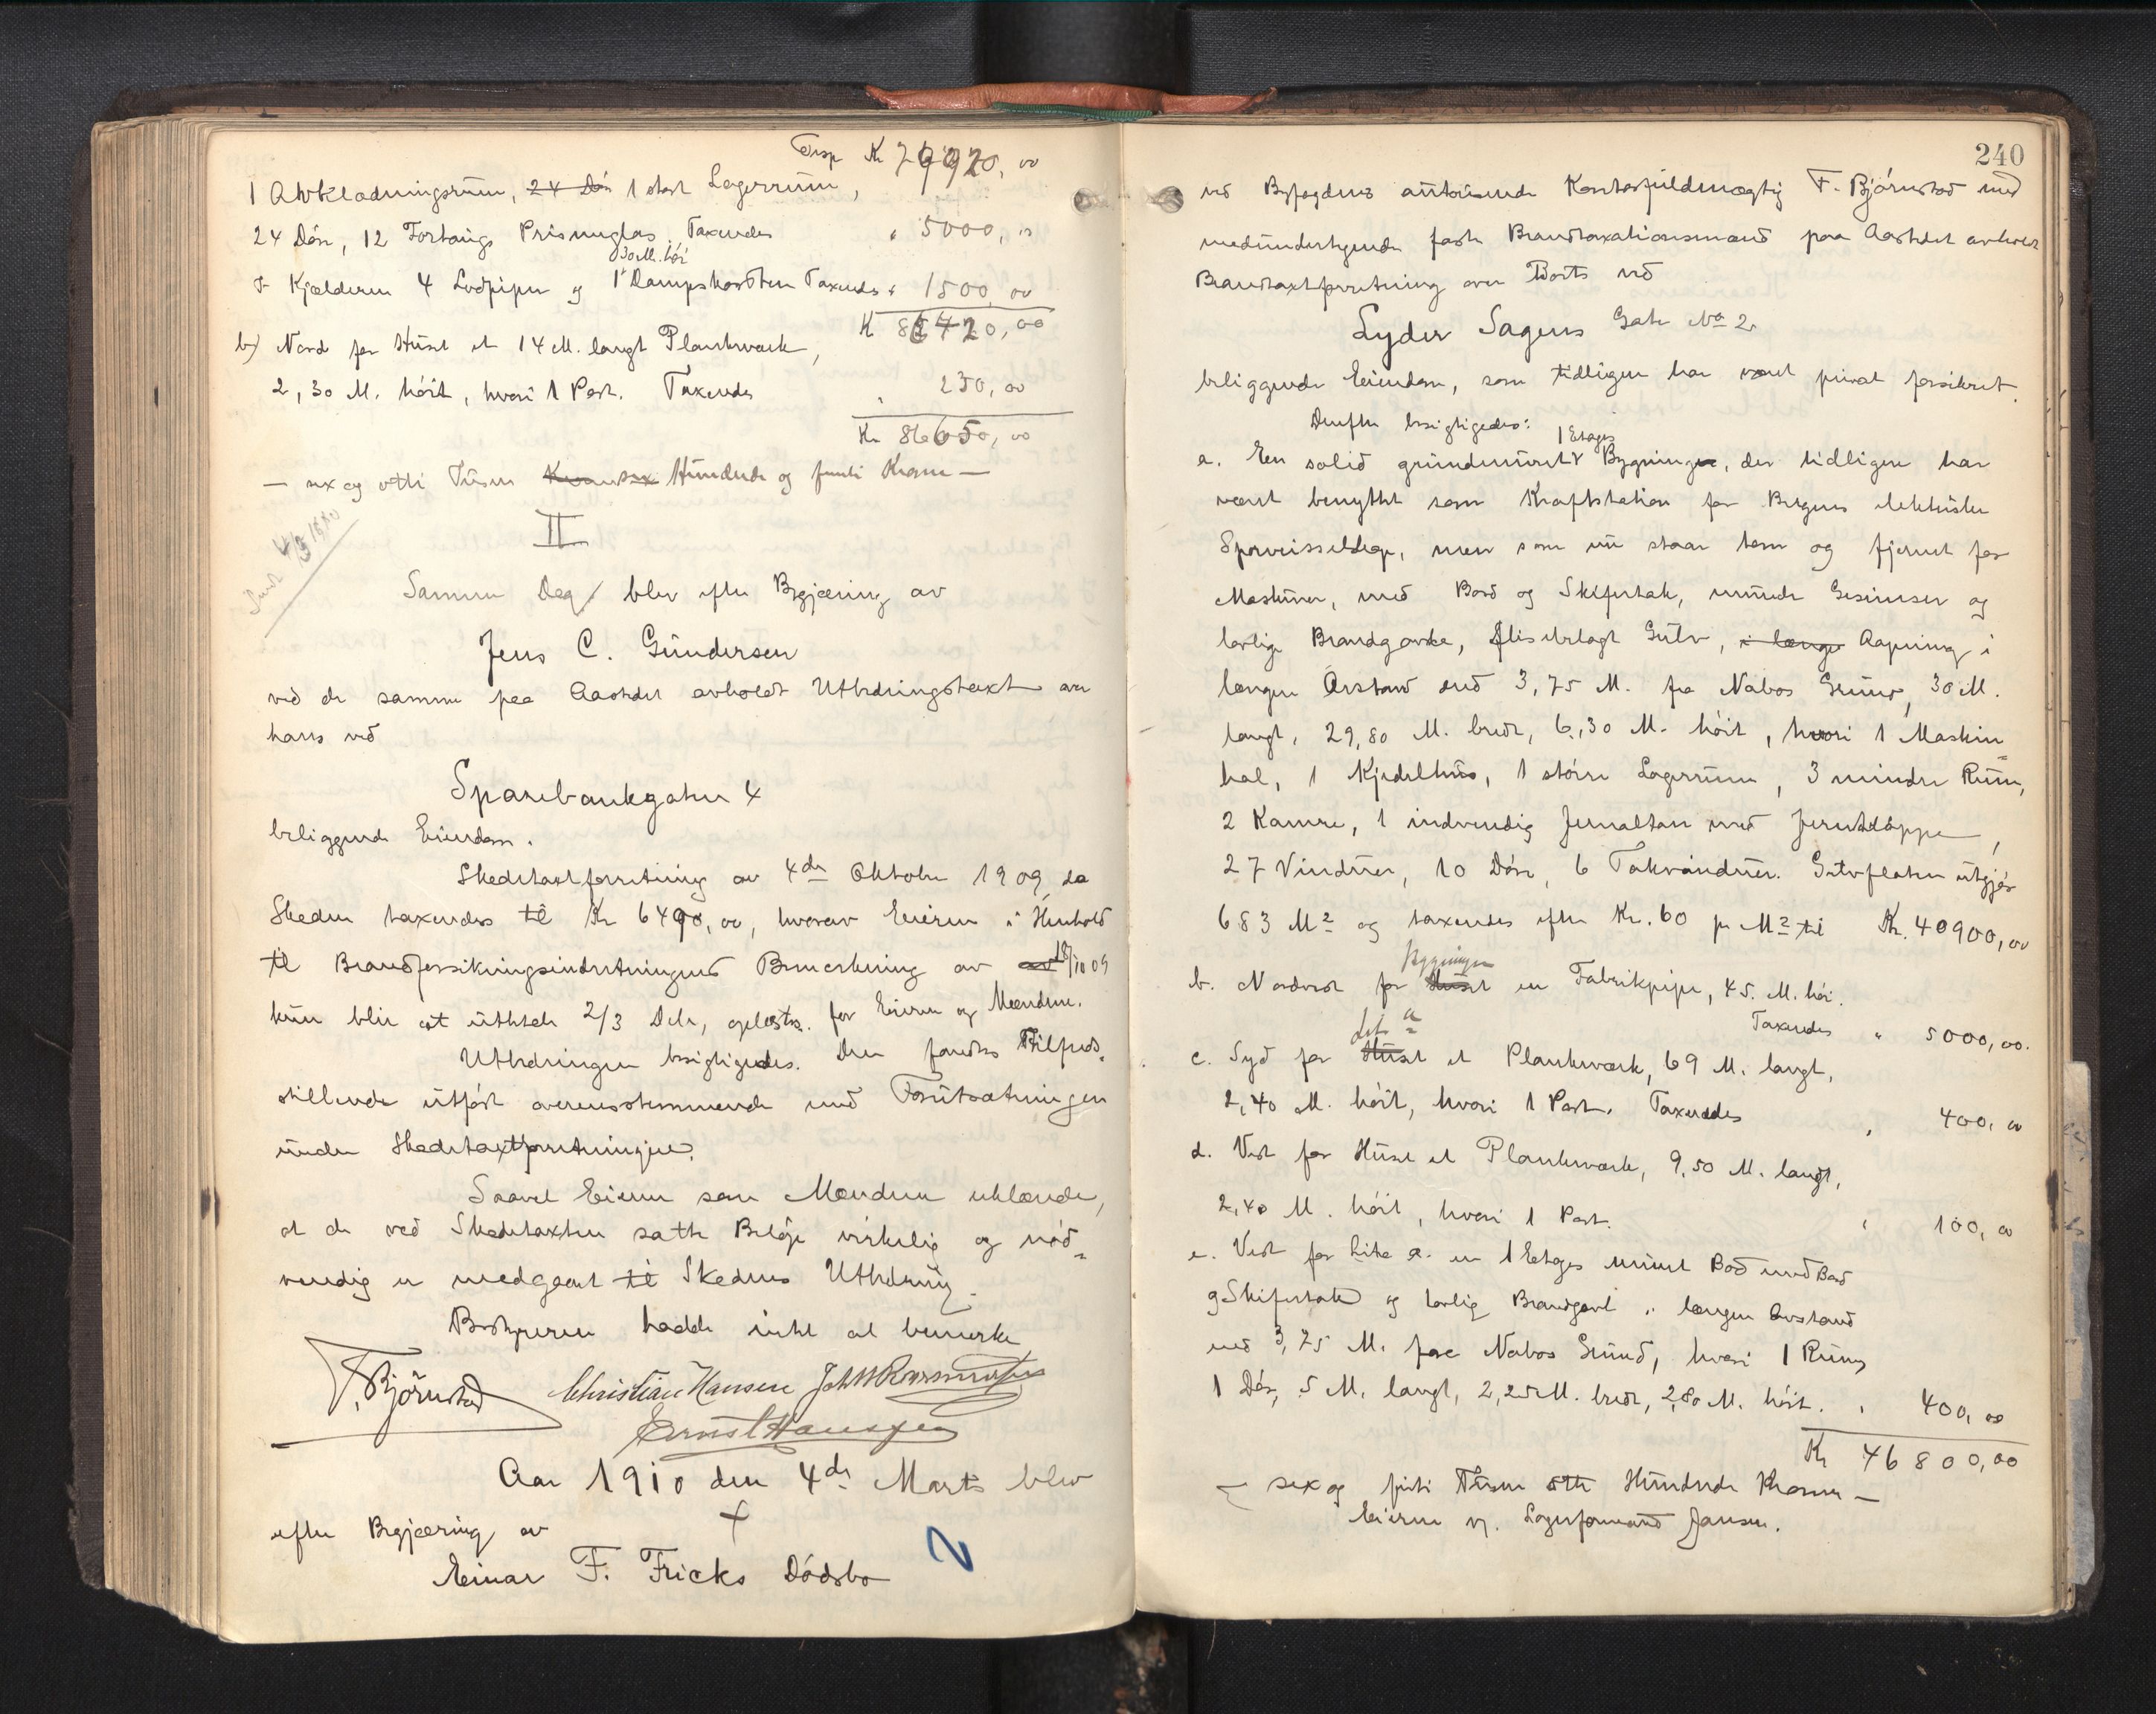 Transp Kr 79920,00
1 Avklædningsrum, 24 Dör 1 stort Lagerrum,
24 Döre, 12 Fortaugs Prismeglas Taxeredes " 5000, "
30 M. höi
I Kjælderen 4 Lodpiper og 1 Dampskorsten Taxeredes " 1500,00
Kr 86420,00
b) Nord for Huset et 14 M. langt Plankeværk,
2,30 M. höit, hvori 1 Port. Taxeredes " 230,00
Kr 86650,00
— sex og otti Tusen sex Hundrede og femti Kroner —
II
Samme Dag blev efter Begjæring av
Jens C. Gundersen
ved de samme paa Aastedet avholdt Utbedringstakst over
hans ved
Sparebankgaten 4
beliggende Eiendom.
Skadetaxtforretning av 4de Oktober 1909, da
Skaden taxeredes til Kr 6490,00, hvorav Eieren i Henhold
til Brandforsikringsindretningens Bemerkning av 18/10 09
kun blir at utbetale 2/3 Dele, oplæstes for Eieren og Mændene.
Utbedringen besigtigedes. Den fandtes tilfreds-
stillende utfört overensstemmende med Forutsætningen
under Skadetaxtforretningen.
Saavel Eieren som Mændene erklærede,
at de ved Skadetaxten satte Belöp virkelig og nöd-
vendig er medgaaet til Skadens Utbedring.
Bestyreren hadde intet at bemerke
F. Björnstad Christian Hansen Joh. W Rasmussen
Ernst Hansen
Aar 1910 den 4de Marts blev
efter Begjæring av
Einar F. Fricks Dödsbo
2
240
ved Byfogdens autoriserede Kontorfuldmægtig F. Björnstad med
medundertegnede faste Brandtaxationsmænd paa Aastedet avholdt
Brandtaxtforretning over Boets ved
Lyder Sagens Gate No 2
beliggende Eiendom, som tidligere har været privat forsikret.
Derefter besigtigedes:
1 Etages
a. En solid grundmuret Bygning, der tidligere har
været benyttet som Kraftstation for Bergens elektriske
Sporveisselskap, men som nu staar tom og fjernet for
Maskiner, med Bord og Skifertak, murede Gesimser og
lovlige Brandgavle, flisebelagt Gulv, i længe Aapning i
længere Avstand end 3,75 M. fra Nabos Grund, 30 M.
langt, 29,80 M. bredt, 6,30 M. höit, hvori 1 Maskin-
hal, 1 Kjedelhus, 1 större Lagerrum, 3 mindre Rum,
2 Kamre, 1 indvendig Jernaltan med Jerntrappe,
27 Vinduer, 10 Döre, 6 Takvinduer. Gulvflaten utgjör
683 M2 og taxeredes efter Kr. 60 pr M2 til Kr. 40900,00
Bygningen
b. Nordvest for Huset en Fabrikpipe, 45 M. höi.
Taxeredes " 5000,00.
Lit. a
c. Syd for Huset et Plankeværk, 69 M. langt,
2,40 M. höit, hvori 1 Port. Taxeredes " 400,00
d. Vest for Huset et Plankeværk, 9,50 M. langt,
2,40 M. höit, hvori 1 Port. " 100,00
e. Vest for Litra a. en 1 Etages muret Bod med Bord
og Skifertak og lovlig Brandgavl i længere Avstand
end 3,75 M. fra Nabos Grund, hvori 1 Rum,
1 Dör, 5 M. langt, 2,25 M. bredt, 2,80 M. höit. " 400,00
Kr 46800,00
— sex og firti Tusen otte Hundrede Kroner —
Eieren v. Lagerformand Jansen.